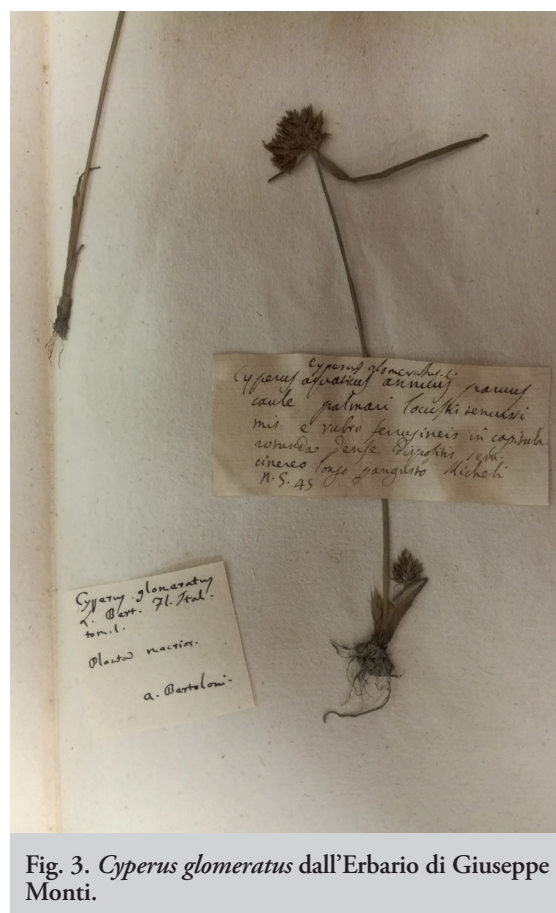 Cyperus glomeratus. L.
Cyperus aquaticus annuus parvus
caule palmari locustis tenuissi
mis e rubro ferrugineis in capitula
rotunda dense dispositis
cinereo longo Micheli
N. G. 45
Cyperus glomeratus
L. Bert. Fl. Ital.
tom. 1.
Planta macrior.
A. Bertoloni.
Fig. 3. Cyperus glomeratus dall’Erbario di Giuseppe
Monti.